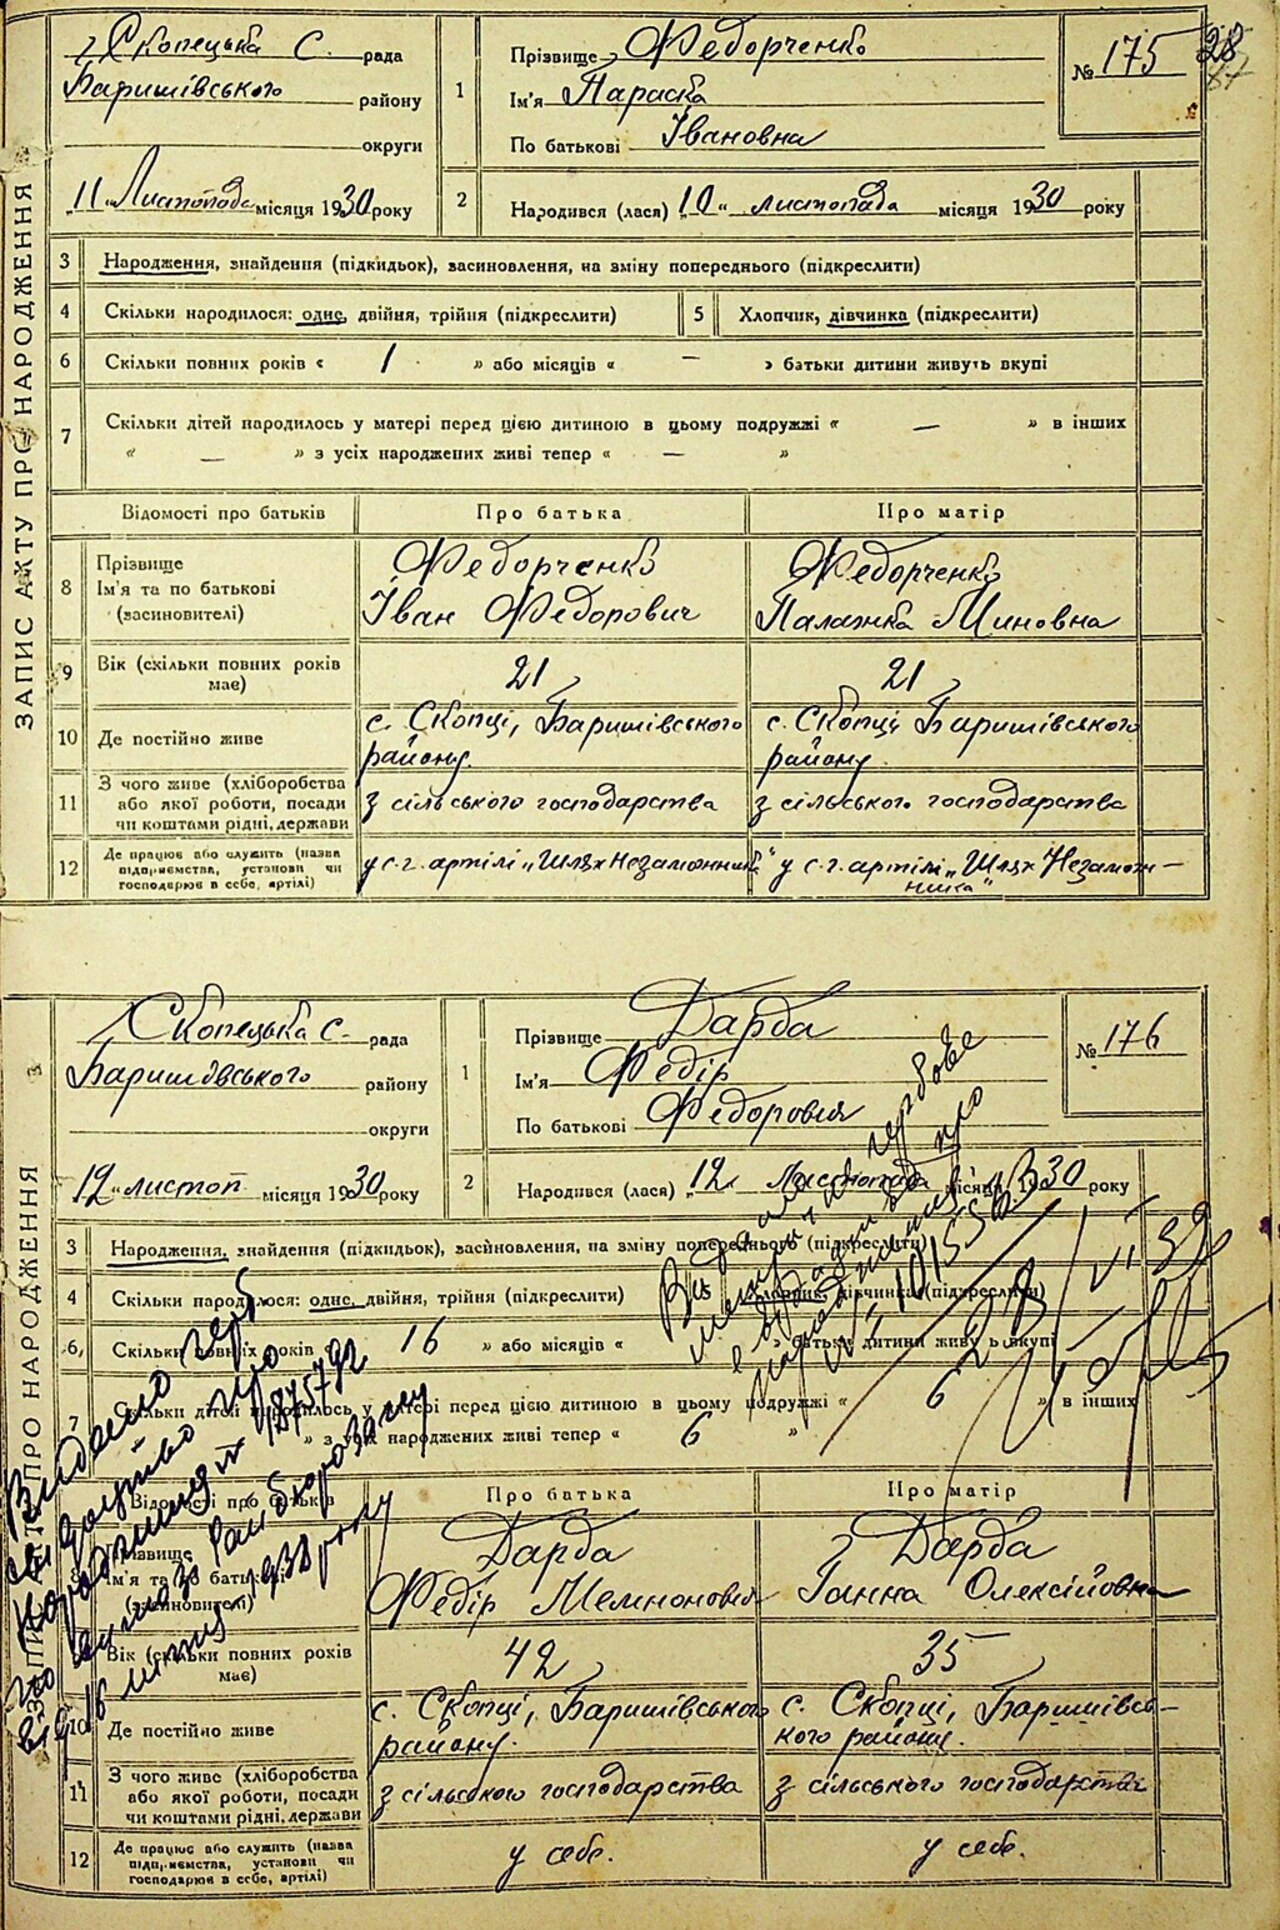 ЗАПИС АКТУ ПРО НАРОДЖЕННЯ
Скопецька С. рада
Баришівського району
округи
„11“ Листопада місяця 1930 року
1
Прізвище Федорченко
Ім'я Параска
По батькові Івановна
№ 175
28
2
Народився (лася) „10“ листопада місяця 1930 року
3 Народження, знайдення (підкидьок), засиновлення, на зміну попереднього (підкреслити)
4 Скільки народилося: одне, двійня, трійня (підкреслити) 5 Хлопчик, дівчинка (підкреслити)
6 Скільки повних років « 1 » або місяців « — » батьки дитини живуть вкупі
7 Скільки дітей народилось у матері перед цією дитиною в цьому подружжі « — » в інших
« — » з усіх народжених живі тепер « — »
Відомості про батьків Про батька Про матір
8 Прізвище Ім'я та по батькові (засиновителі)
Федорченко Іван Федорович
Федорченко Палажка Миновна
9 Вік (скільки повних років має) 21 21
10 Де постійно живе с. Скопці, Баришівського району. с. Скопці, Баришівського району.
11 З чого живе (хліборобства або якої роботи, посади чи коштами рідні, держави
з сільського господарства з сільського господарства
12 Де працює або служить (назва підприємства, установи чи господарює в себе, артілі)
у с.-г. артілі „Шлях Незаможника“ у с.-г. артілі „Шлях Незаможника“
ПРО НАРОДЖЕННЯ
Скопецька С. рада
Баришівського району
округи
12 „листоп місяця 1930 року
1
Прізвище Дарба
Ім'я Федір
По батькові Федоровия
№ 176
2
Народився (лася) „12„ Листопада місяця 1930 року
3 Народження, знайдення (підкидьок), засиновлення, на зміну попереднього (підкреслити)
4 Скільки народилося: одне, двійня, трійня (підкреслити) Хлопчик, дівчинка (підкреслити)
6 Скільки повних років 16 » або місяців « » батьки дитини живуть вкупі
7 Скільки дітей народилось у матері перед цією дитиною в цьому подружжі « 6 » в інших
» з усіх народжених живі тепер « 6 »
Видано герб
свідоцтво про
народження № 1875792
1938 року
Відомості про батьків Про батька Про матір
8 Прізвище Ім'я та по батькові (засиновителі)
Дарба Федір Мемноновия
Дарба Ганна Олексійовна
Вік (скільки повних років має) 42 35
10 Де постійно живе с. Скопці, Баришівського району. с. Скопці, Баришівського району.
11 З чого живе (хліборобства або якої роботи, посади чи коштами рідні, держави
з сільського господарства з сільського господарства
12 Де працює або служить (назва підприємства, установи чи господарює в себе, артілі)
у себе. у себе.